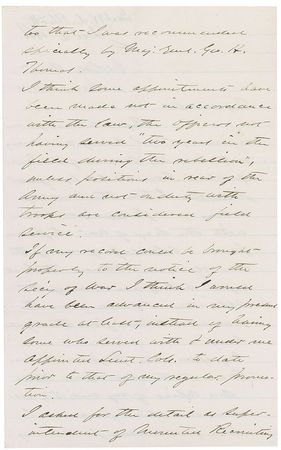 too that I was recommended
specially by Maj. Genl. Geo. H.
Thomas.
I think some appointments have
been made not in accordance
with the law, the officers not
having served "two years in the
field during the rebellion",
unless positions in rear of the
Army and not on duty with
troops are considered field
service.
If my record could be brought
properly to the notice of the
Secy of War I think I would
have been advanced in my present
grade at least, instead of having
some who served with & under me
appointed Lieut. Cols. to date
prior to that of my regular promo-
tion.
I asked for the detail as Super-
intendent of Mounted Recruiting